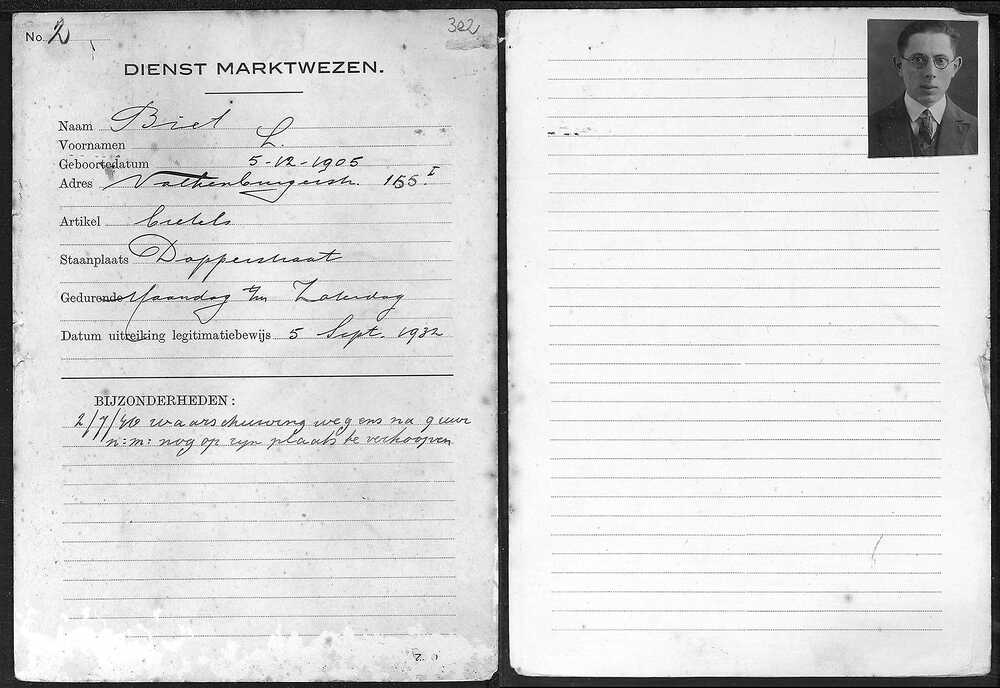 No. 2
302
DIENST MARKTWEZEN.
Naam Biet
Voornamen L.
Geboortedatum 5-12-1905
Adres Valkenburgerstr. 155 I
Artikel
Staanplaats Dapperstraat
Gedurende Maandag t/m Zaterdag
Datum uitreiking legitimatiebewijs 5 Sept. 1932
BIJZONDERHEDEN:
2/7/40 waarschuwing wegens na 9 uur
n:m: nog op zijn plaats te verkoopen